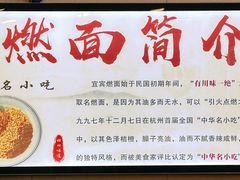 燃面简介
名小吃
宜宾燃面始于民国初期年间，“有川味一绝”
取名燃面，是因为其油多而无水，可以“引火点燃
九九七年十二月七日在杭州首届全国“中华名小吃”
以其色泽桔橙、臊子亮油、油而不腻香辣咸鲜，
的独特风格，而被美食家评比认定为“中华名小吃